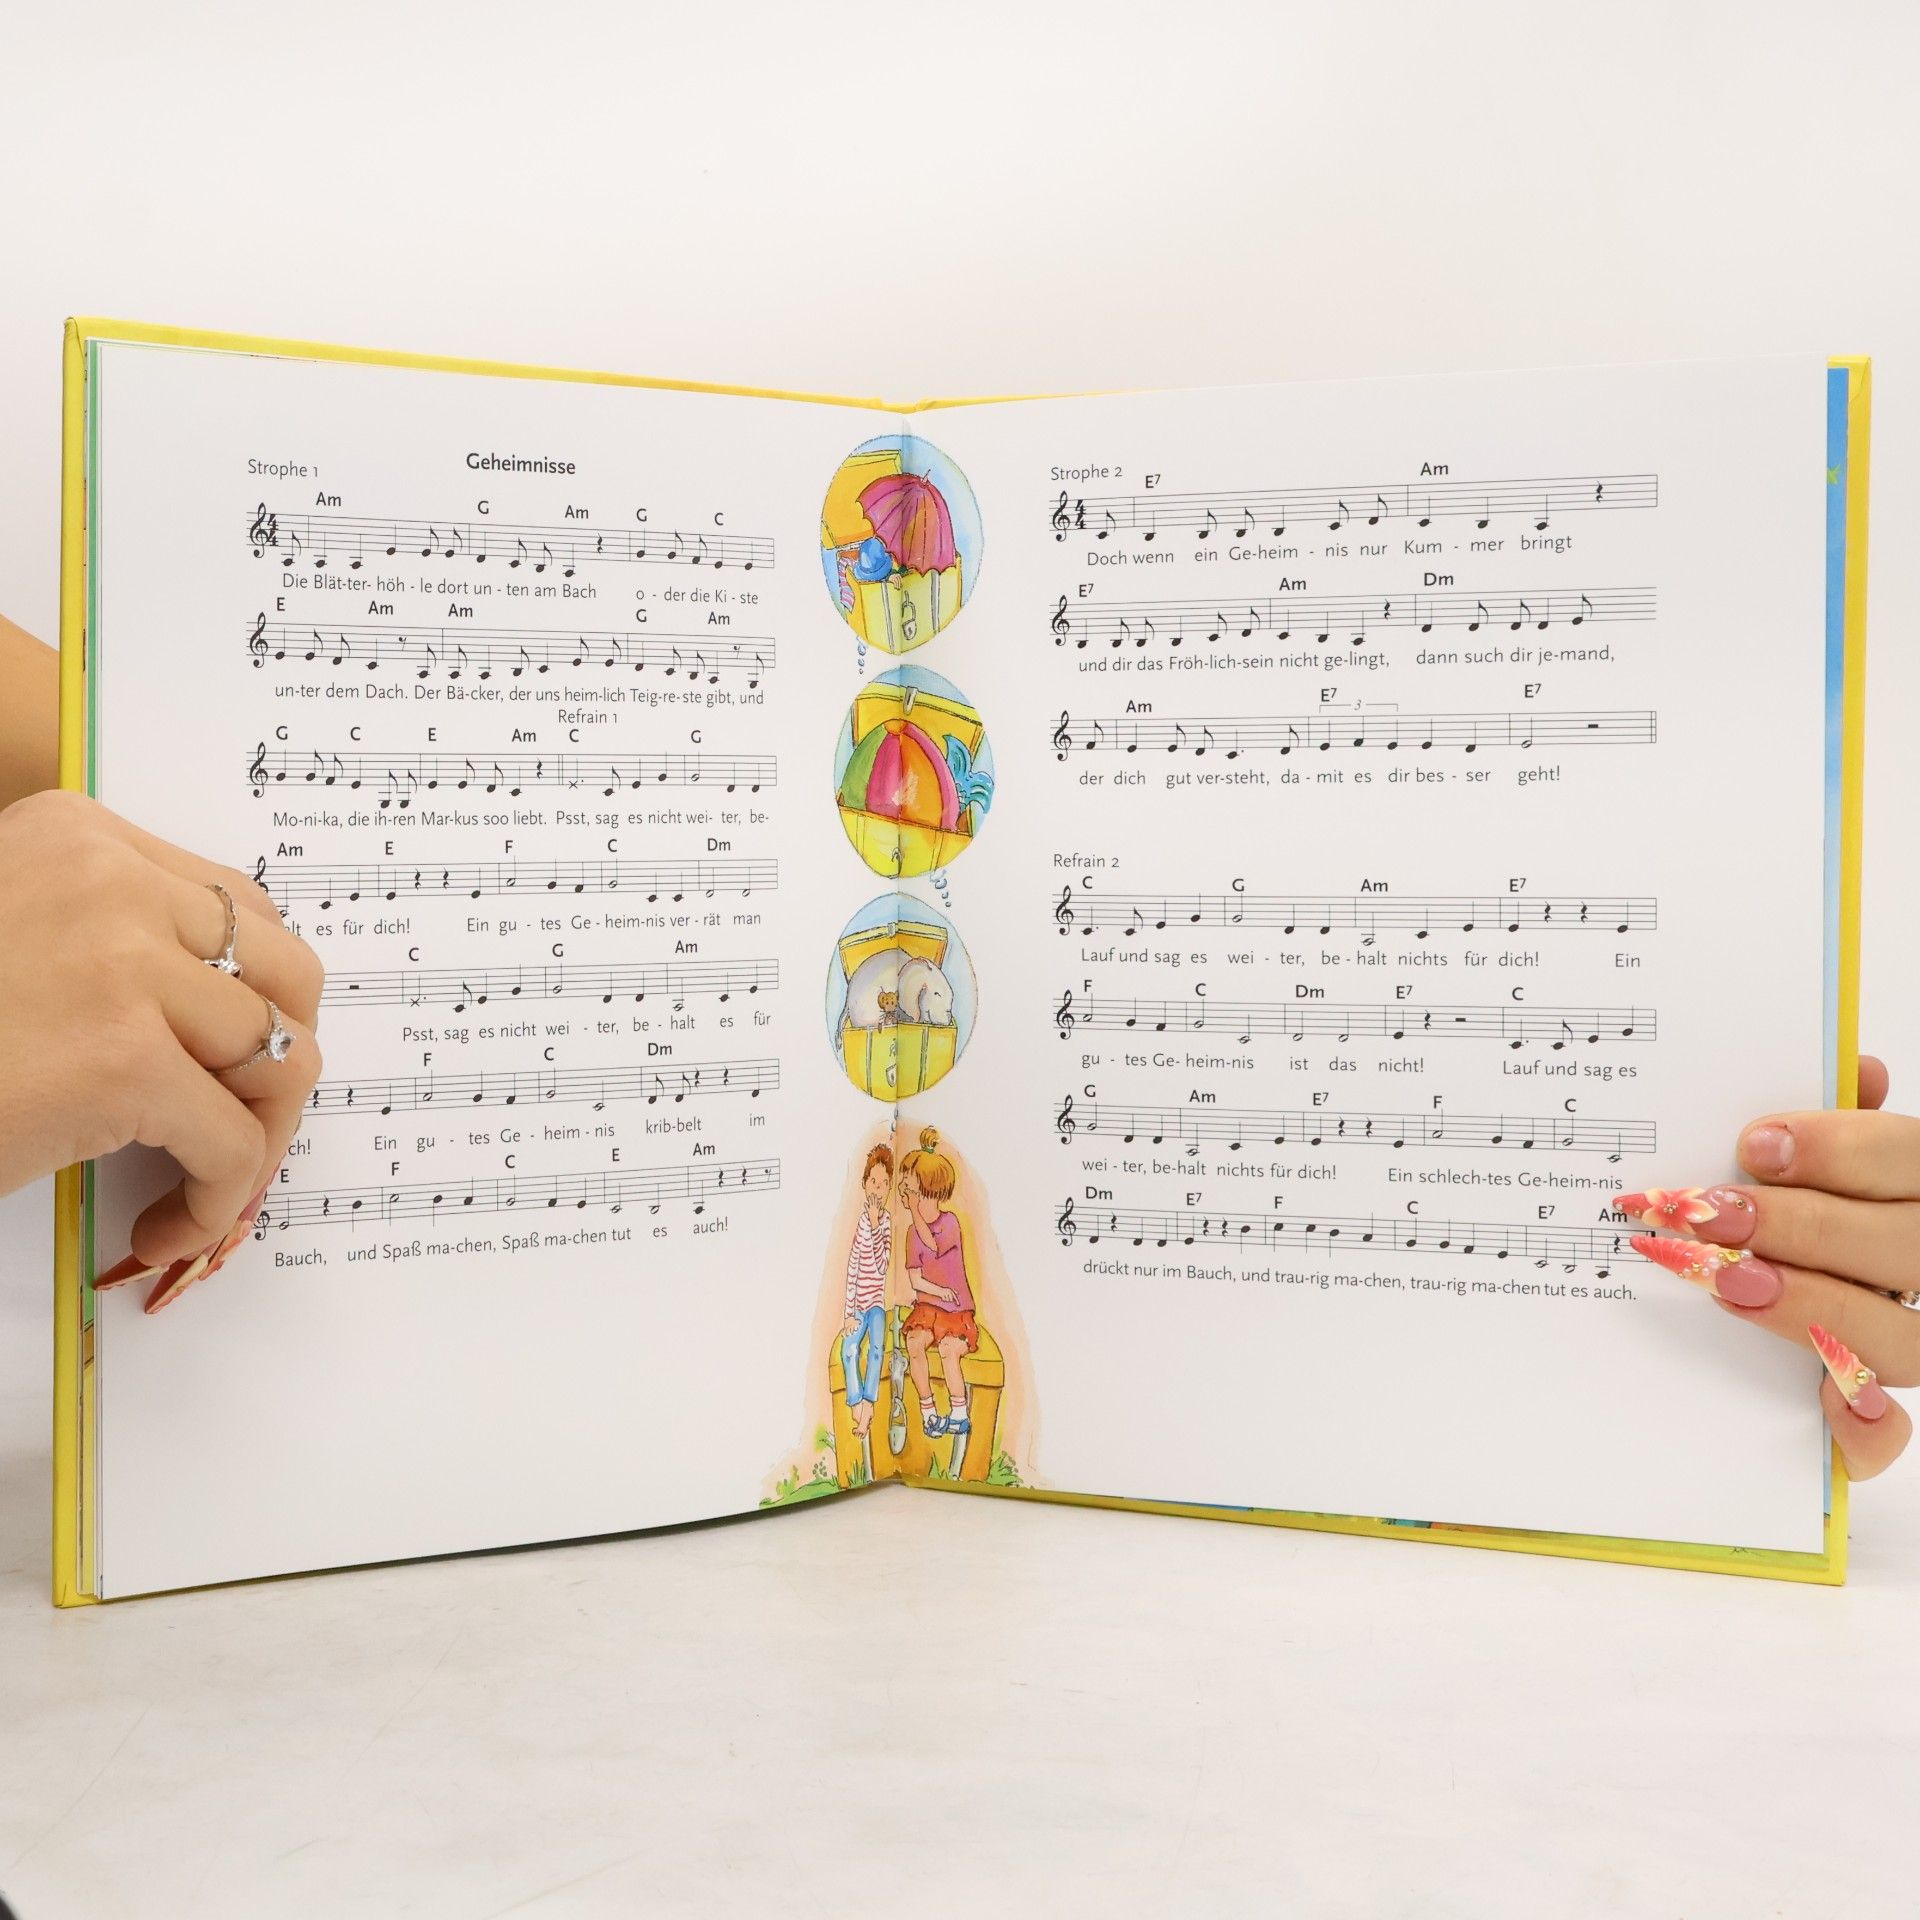 Geheimnisse
Strophe 1
Am G Am G C
Die Blät-ter-höh-le dort un-ten am Bach o-der die Ki-ste
E Am Am G Am
un-ter dem Dach. Der Bä-cker, der uns heim-lich Teig-re-ste gibt, und
Refrain 1
G C E Am C G
Mo-ni-ka, die ih-ren Mar-kus soo liebt. Psst, sag es nicht wei-ter, be-
Am E F C Dm
es für dich! Ein gu-tes Ge-heim-nis ver-rät man
C G Am
Psst, sag es nicht wei-ter, be-halt es für
F C Dm
Ein gu-tes Ge-heim-nis krib-belt im
E F C E Am
Bauch, und Spaß ma-chen, Spaß ma-chen tut es auch!
Strophe 2
E7 Am
Doch wenn ein Ge-heim-nis nur Kum-mer bringt
E7 Am Dm
und dir das Fröh-lich-sein nicht ge-lingt, dann such dir je-mand,
Am E7 E7
3
der dich gut ver-steht, da-mit es dir bes-ser geht!
Refrain 2
C G Am E7
Lauf und sag es wei-ter, be-halt nichts für dich! Ein
F C Dm E7 C
gu-tes Ge-heim-nis ist das nicht! Lauf und sag es
G Am E7 F C
wei-ter, be-halt nichts für dich! Ein schlech-tes Ge-heim-nis
Dm E7 F C E7 Am
drückt nur im Bauch, und trau-rig ma-chen, trau-rig ma-chen tut es auch.